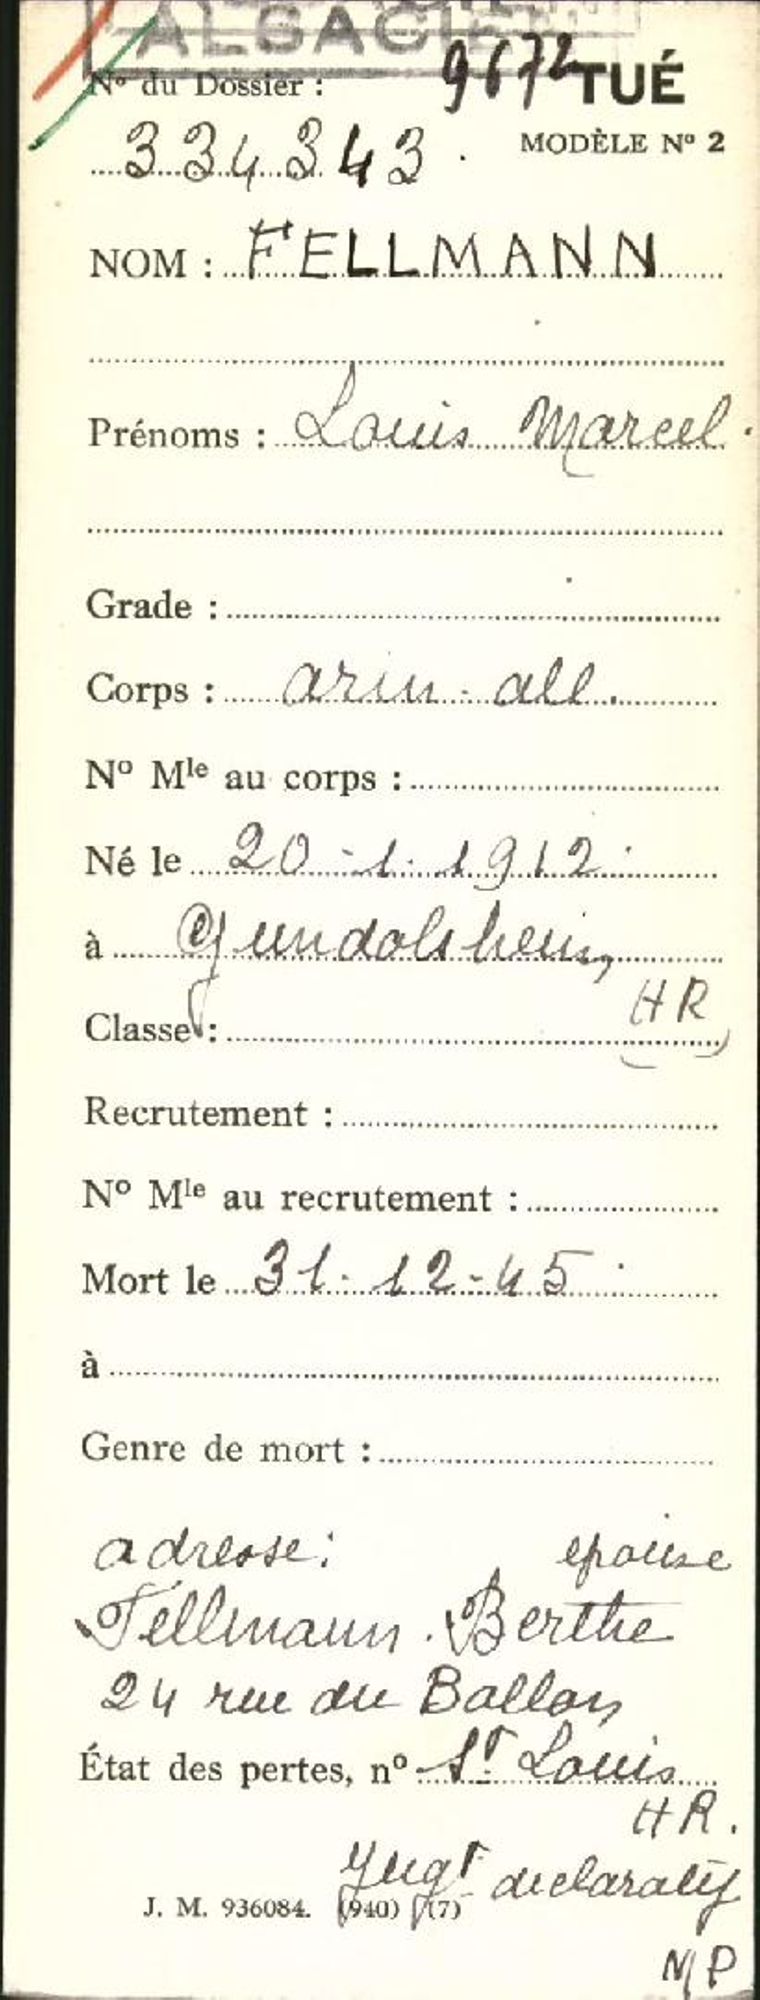 ALSACIEN
9672 TUÉ
Nº du Dossier :
MODÈLE Nº 2
334343.
NOM : FELLMANN
Prénoms : Louis Marcel.
Grade :
Corps : arm. all.
Nº Mle au corps :
Né le 20-1.1912.
à Gundolsheim,
HR
Classe :
Recrutement :
Nº Mle au recrutement :
Mort le 31-12-45.
à
Genre de mort :
adresse: epouse
Fellmann. Berthe
24 rue du Ballon
État des pertes, nº St Louis
HR.
Jugt declaratif
J. M. 936084. (940) (17)
MP